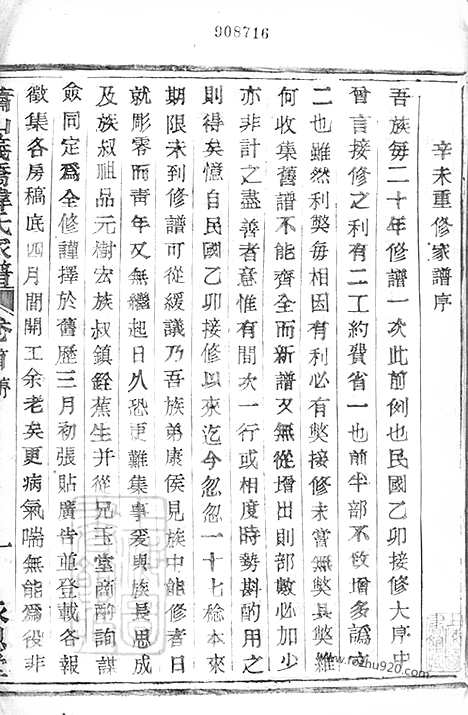 908716
辛未重修家譜序
吾族每二十年修譜一次此前例也民國乙卯接修大序中
曾言接修之利有二工約費省一也前半部不致增多訛
二也雖然利獘每相因有利必有獘接修未嘗無獘具獘維
何收集舊譜不能齊全而新譜又無從增出則部數必加少
亦非計之盡善者意惟有間次一行或相度時勢斟酌用之
則得矣憶自民國乙卯接修以來迄今忽忽一十七稔本來
期限未到修譜可從緩議乃吾族弟康侯見族中能修者日
就彫零而靑年又無繼起日久恐更難集事爰與族長思成
及族叔祖品元樹宏族叔鎮銓蕉生并從兄玉堂商酌詢謀
僉同定爲全修謹擇於舊歷三月初張貼廣告並登載各報
徵集各房稿底四月間開工余老矣更病氣喘無能爲役非
蕭山義橋韓氏家譜
卷首
一